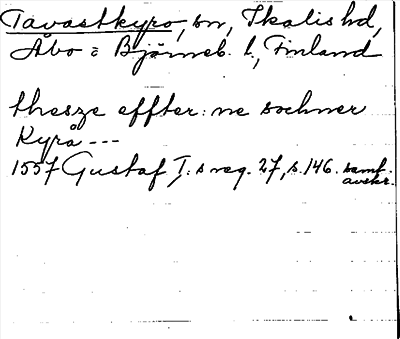 Tavastkyro, sn, Ikalis hd,
Åbo o Björneb. l., Finland
thesze effter: ne sochner
Kyrå ---
1557 Gustaf I: s reg. 27, s. 146. samt.
avskr.